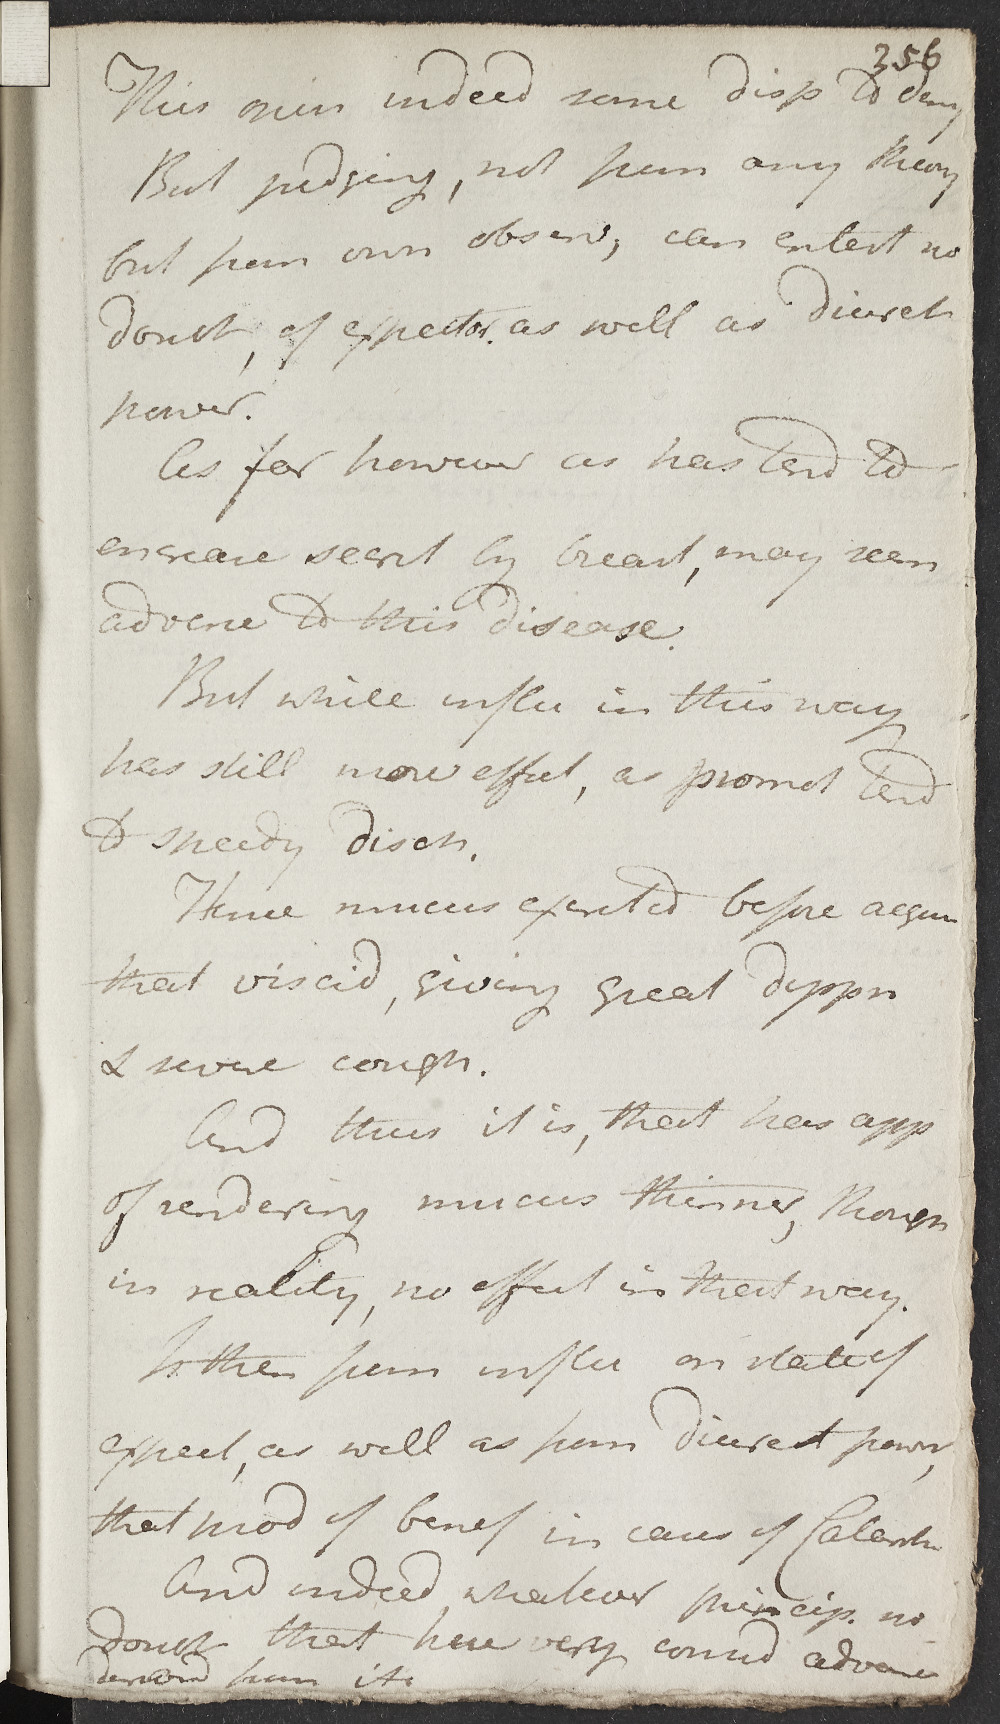 356
This opin indeed some disp to deny
But judging, not from any theory
but from own observ, can entert no
doubt, of expector. as well as diuret
power.
As far however as has tend to
encrease secret by breast, may seem
adverse to this disease.
But while influ in this way
has still more effect, as promot tend
to speedy disch.
Hence mucus excreted before acqui
that viscid, giving great dyspn
& severe cough.
And thus it is, that has app
of rendering mucus thinner, though
in reality, no effect in that way.
Is then from influ on state of
expect, as well as from diuret power,
that prod of benef in cases of Catarrh
And indeed whatever princip. no
doubt that here very consid advan
derived from it.